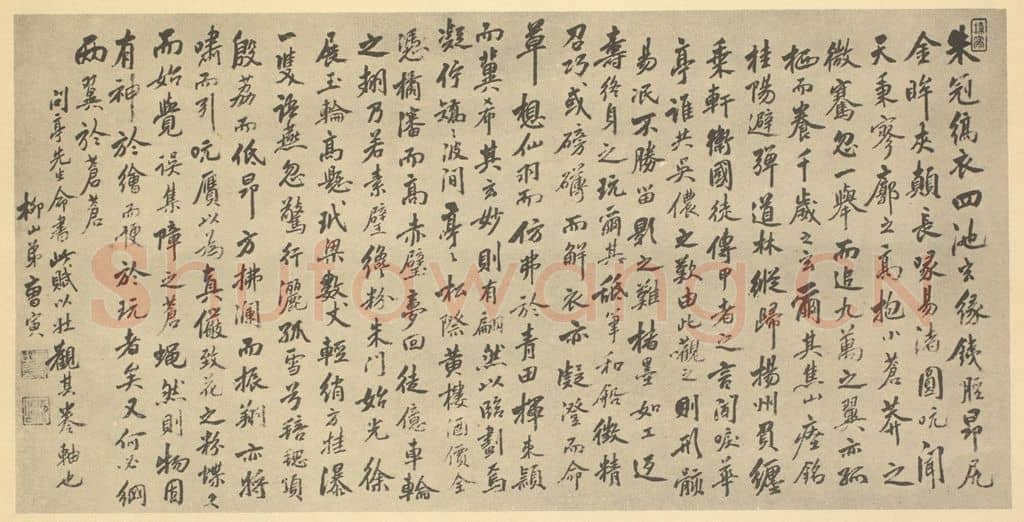 朱冠縞衣四池玄緣脛昂尻
金眸夾顛長喙易渚圓吭聞
天秉寥廓之高抱小蒼莽之
微騫忽一舉而追九萬之翼亦孤
栖而養千歲之玄爾其焦山瘞銘
桂陽避彈道林縱歸揚州買纏
乘軒衛國徒傳甲者之言聞唳華
亭誰共吳儂之歎由此觀之則形骸
易泯不勝留影之難楮墨如工迺
壽終身之玩爾其舐筆和鉛徵精
召巧或磅礴而解衣亦凝澄而命
草想仙羽而仿弗於青田揮束穎
而冀希其玄妙則有翩然以臨劃焉
凝佇矯〻波間亭〻松際黄樓酒價全
憑橘瀋而高赤壁夢回徒億車輪
之翅乃若素壁粉朱門始光徐
展玉輪高懸玳梁數丈輕綃方挂瀑
一雙語燕忽驚行灑孤雪兮頸
殷荔而低昂方拂瀾而振翮亦將
嘯而引吭贋以為真儼致花之粉蝶久
而始覺誤集障之蒼蝇然則物固
有神於繪而於玩者矣又何必網
兩翼於蒼蒼
問亭先生命書此賦以壯觀其卷軸也
柳山弟曹寅
Shufawang.CN